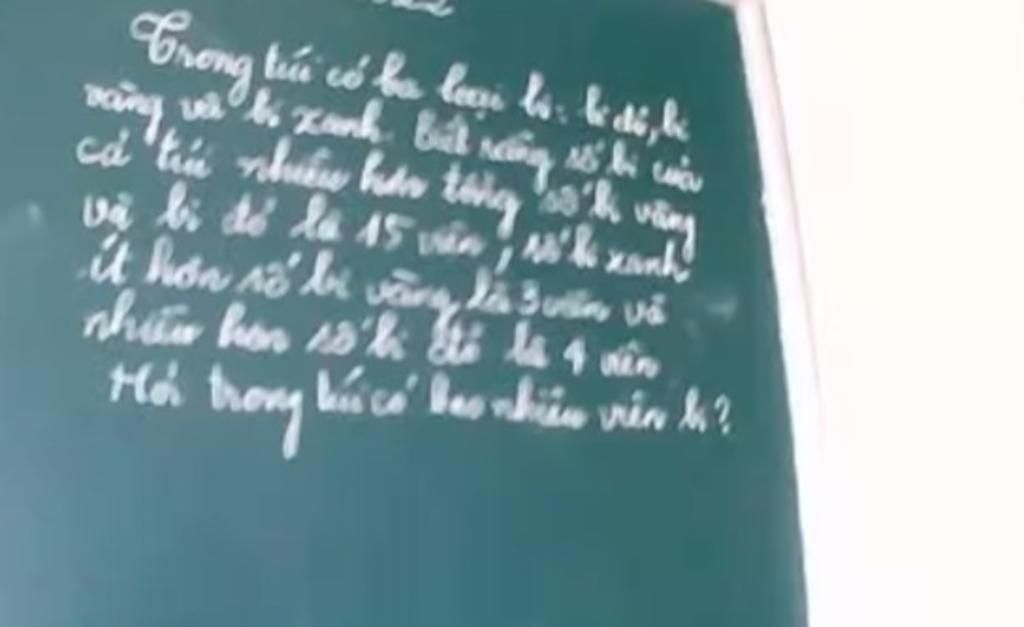 Trong túi có ba loại bi: bi đỏ, bi
vàng và bi xanh. Biết rằng số bi của
cả túi nhiều hơn tổng số bi vàng
và bi đỏ là 15 viên, số bi xanh
ít hơn số bi vàng là 3 viên và
nhiều hơn số bi đỏ là 4 viên
Hỏi trong túi có bao nhiêu viên bi?